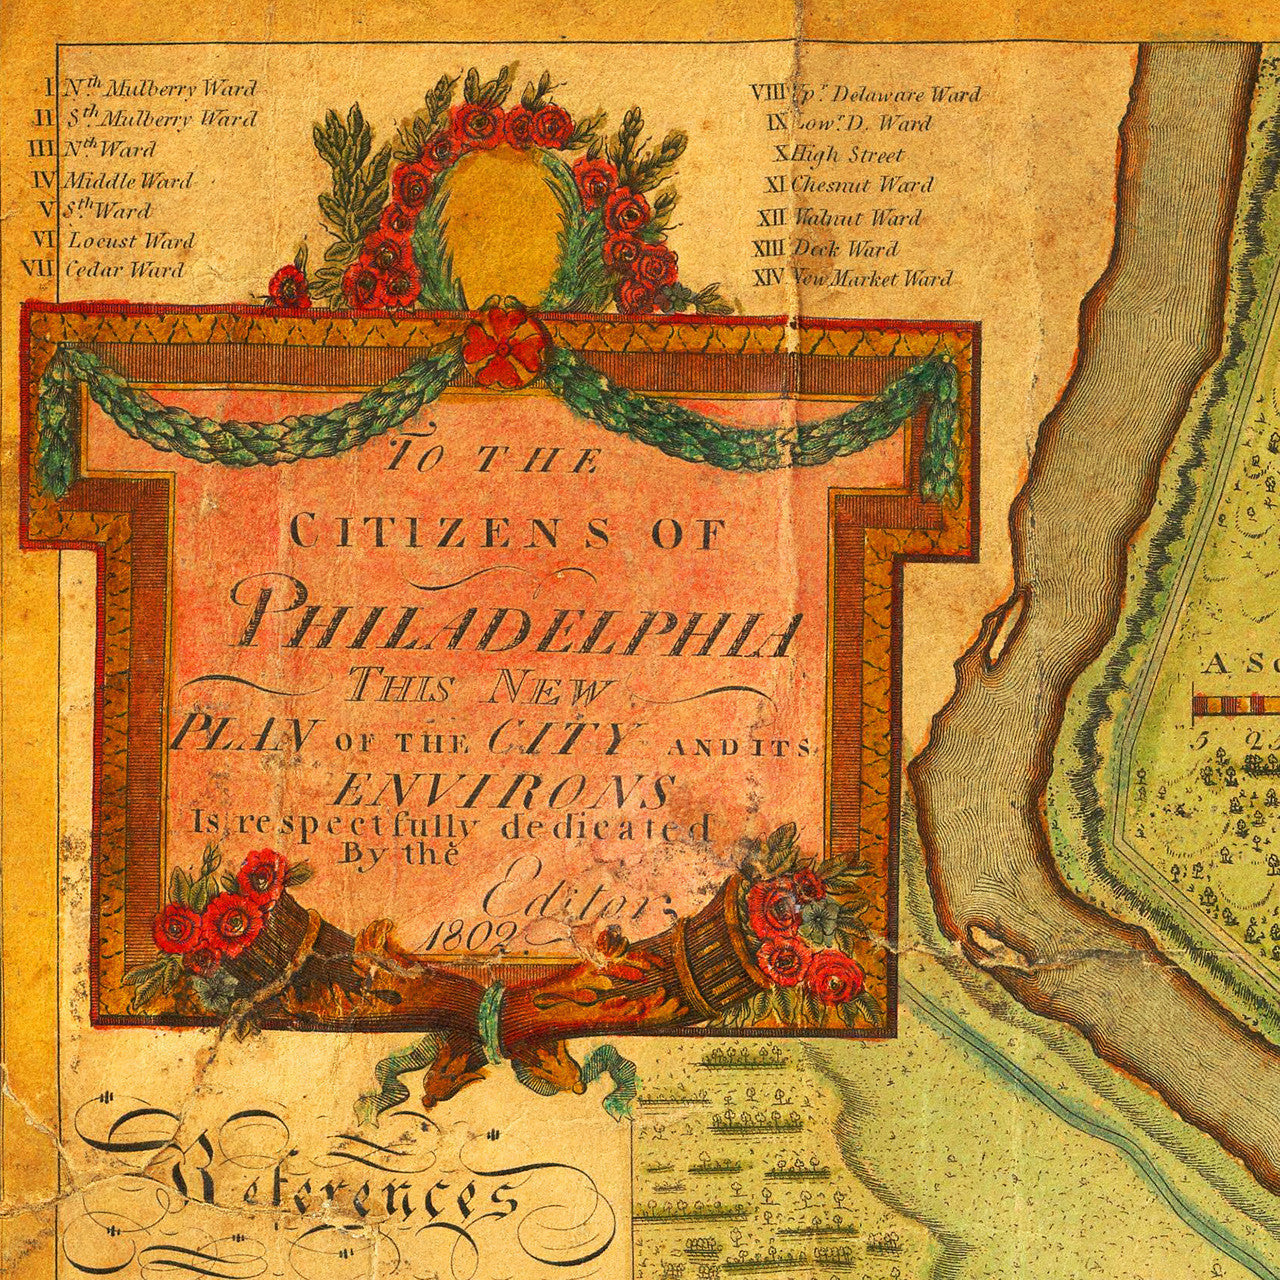 I Nth Mulberry Ward
II Sth Mulberry Ward
III Nth Ward
IV Middle Ward
V Sth Ward
VI Locust Ward
VII Cedar Ward
VIII Upr Delaware Ward
IX Lowr D. Ward
X High Street
XI Chesnut Ward
XII Walnut Ward
XIII Dock Ward
XIV New Market Ward
TO THE
CITIZENS OF
PHILADELPHIA
THIS NEW
PLAN OF THE CITY AND ITS
ENVIRONS
Is respectfully dedicated
By the
Editor;
1802
A SC
5
References